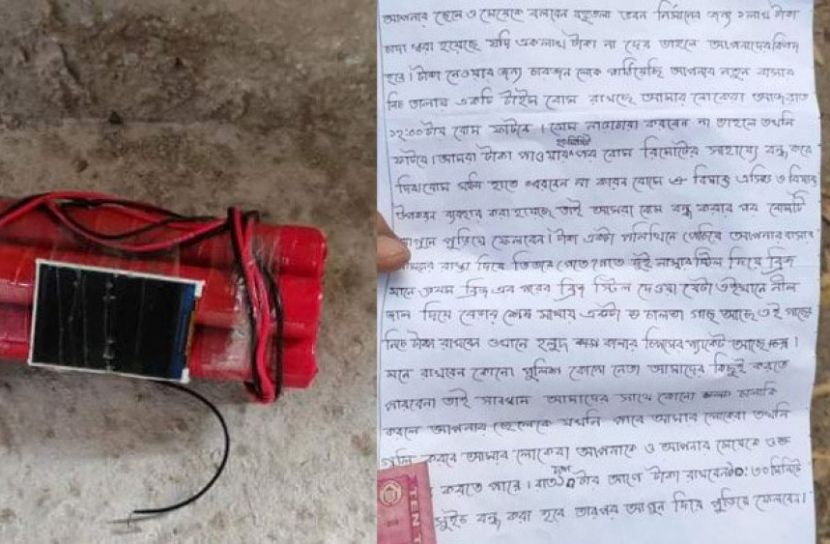 আপনার ছেলে ও মেয়েকে বলবেন বহুতলা ভবন নির্মানের জন্য ১লাখ টাকা
চাদা ধরা হয়েছে যদি একলাখ টাকা না দেন তাহলে আপনাদের বিপদ
হবে। টাকা নেওয়ার জন্য চারজন লোক পাঠিয়েছি আপনার নতুন বাসার
নিচ তালায় একটি টাইম বোম রাখছে আমার লোকেরা আজ রাত
১২:০০টায় বোম ফাটবে। বোম নাড়াচাড়া করবেন না তাহলে তখনি
ফাটবে। আমরা টাকা পাওয়ার পর বোম রিমোটের সাহায্যে বন্ধ করে
দিব বোম হাতে ধরবেন না কারন বোমে বিষাক্ত এসিড ও বিষাক্ত
উপকরন ব্যবহার করা হয়েছে তাই আমরা বোম বন্ধ করার পর বোমটি
আগুনে পুড়িয়ে ফেলবেন। টাকা একটা পলিথিনে পেচিয়ে আপনার বাসার
রাস্তা দিয়ে ভিতরে যেতে যেতে দুই নাম্বার স্টিল দিয়ে ব্রিজ
মানে প্রথম ব্রিজ এর পরের ব্রিজ স্টিল দেওয়া যেটা ওইখানে নীল
জাল দিয়ে বেড়ার শেষ মাথায় একটা চালতা গাছ আছে ওই গাছের
নিচে টাকা রাখবেন ওখানে হলুদ কালার চিপসের প্যাকেট আছে।
মনে রাখবেন কোনো পুলিশ কোনো নেতা আমাদের কিছুই করতে
পারবেনা তাই সাবধান আমাদের সাথে কোনো চালাকি
করলে আপনার ছেলেকে যখনি পাবে আমার লোকেরা তখনি
গুলি করবে আমার লোকেরা আপনাকে ও আপনার মেয়েকে
করতে পারে। রাত টার আগে টাকা রাখবেন :৩০মিনিটে
সুইচ বন্ধ করা হবে তারপর আগুন দিয়ে পুড়িয়ে ফেলবেন।
TEN